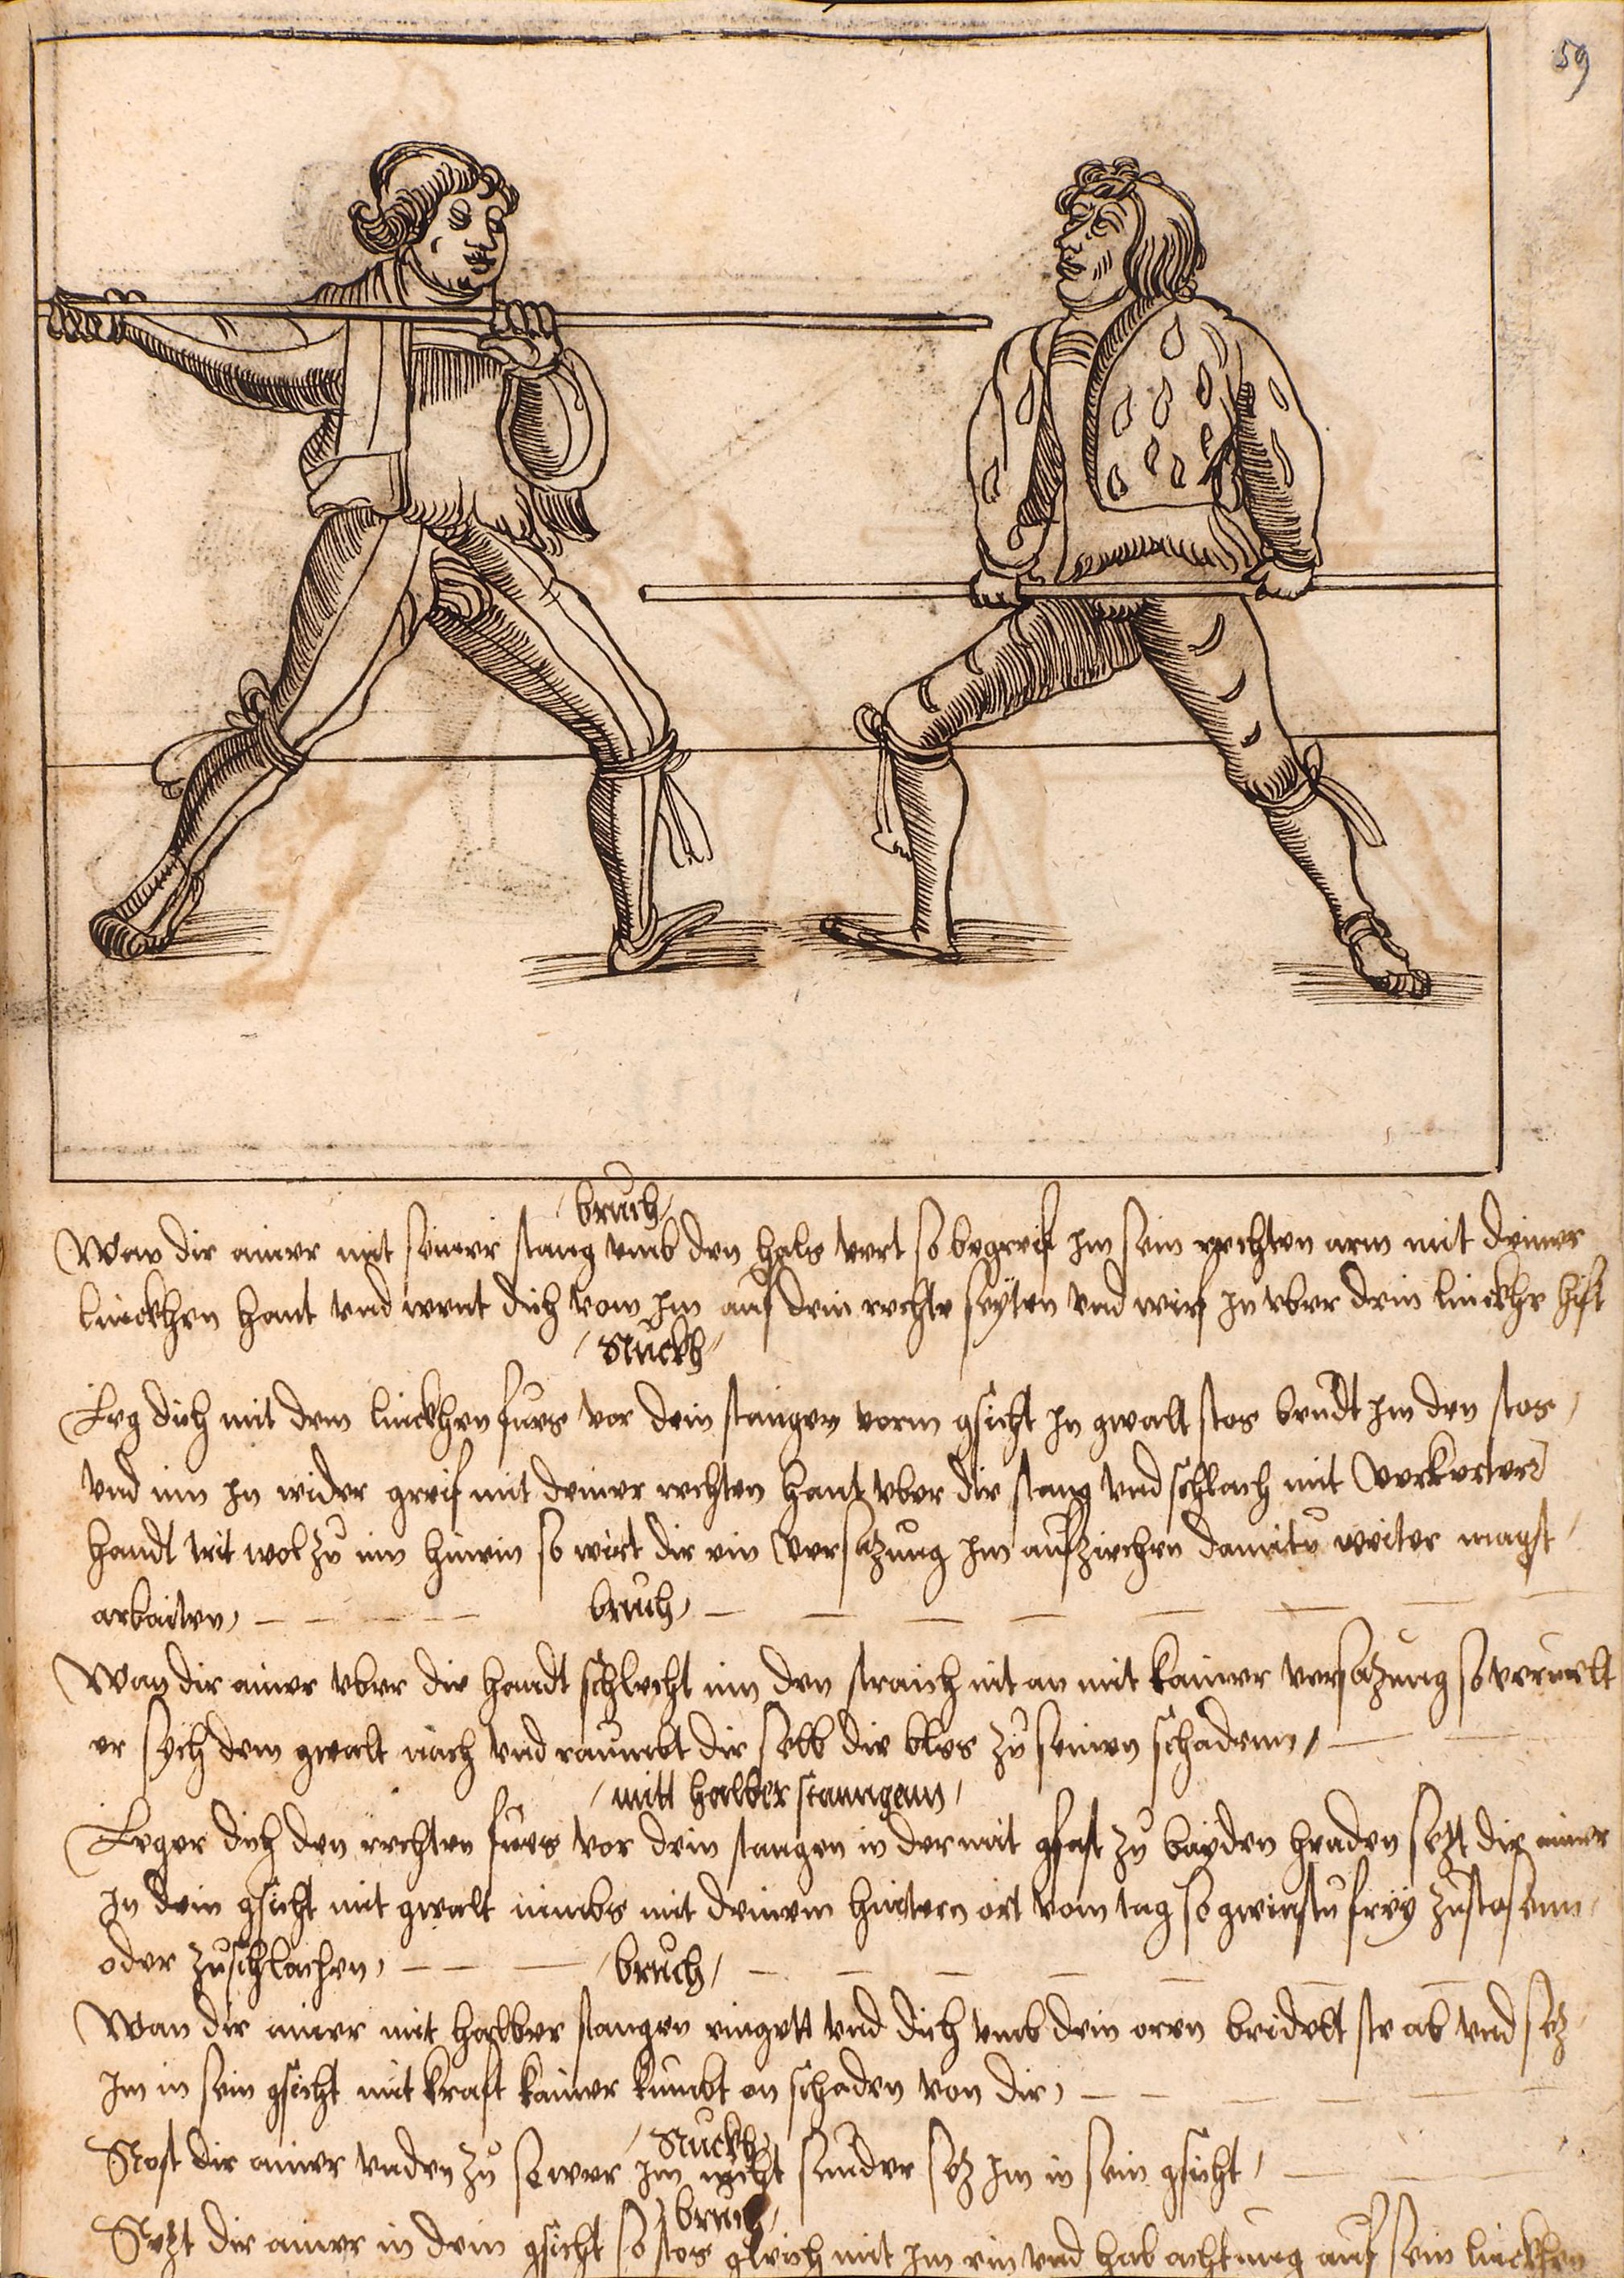 59
bruch
Wan dir ainer mit seiner stang umb den hals vert so begreif im sein rechten arm mit deiner
linckhen hant und went dich vom im auf dein rechte seyten und wirf in vber dein linckhe hift
Stuckh
Leg dich mit dem linckhen fues vor dein stangen vorm gsicht in gwalt stos bendt im den stos
und im in wider greif mit deiner rechten hant vber die stang und schlach mit verkerter
handt trit wol zu im hinein so wirt dir ein versazung im aufziechen damitu weiter magst
arbaiten
bruch
Wan dir ainer vber die handt schlecht nim den straich nit an mit kainer versazung so veruelt
er sych dem gwalt nach und raumbt dir selb die blos zu seinen schadenn
mitt halber stanngenn
Leger dich den rechten fues vor dein stangen in der mit gfast zu bayden henden sezt dir ainer
In dein gsicht mit gwalt nimbs mit deinem hintern ort vom tag so gwinstu frey zustosenn
oder zuschlachen
bruch
Wan dir ainer mit halber stangen eingett und dich umb dein oren bridelt ste ab und sez
im in sein gsicht mit kraft kainer kumbt on schaden von dir
Stuckh
Stost dir ainer unden zu so wer im nicht sunder sez im in sein gsicht
bruch
Sezt dir ainer in dein gsicht so stos gleich mit im ein und hab achtung auf sein linckhen